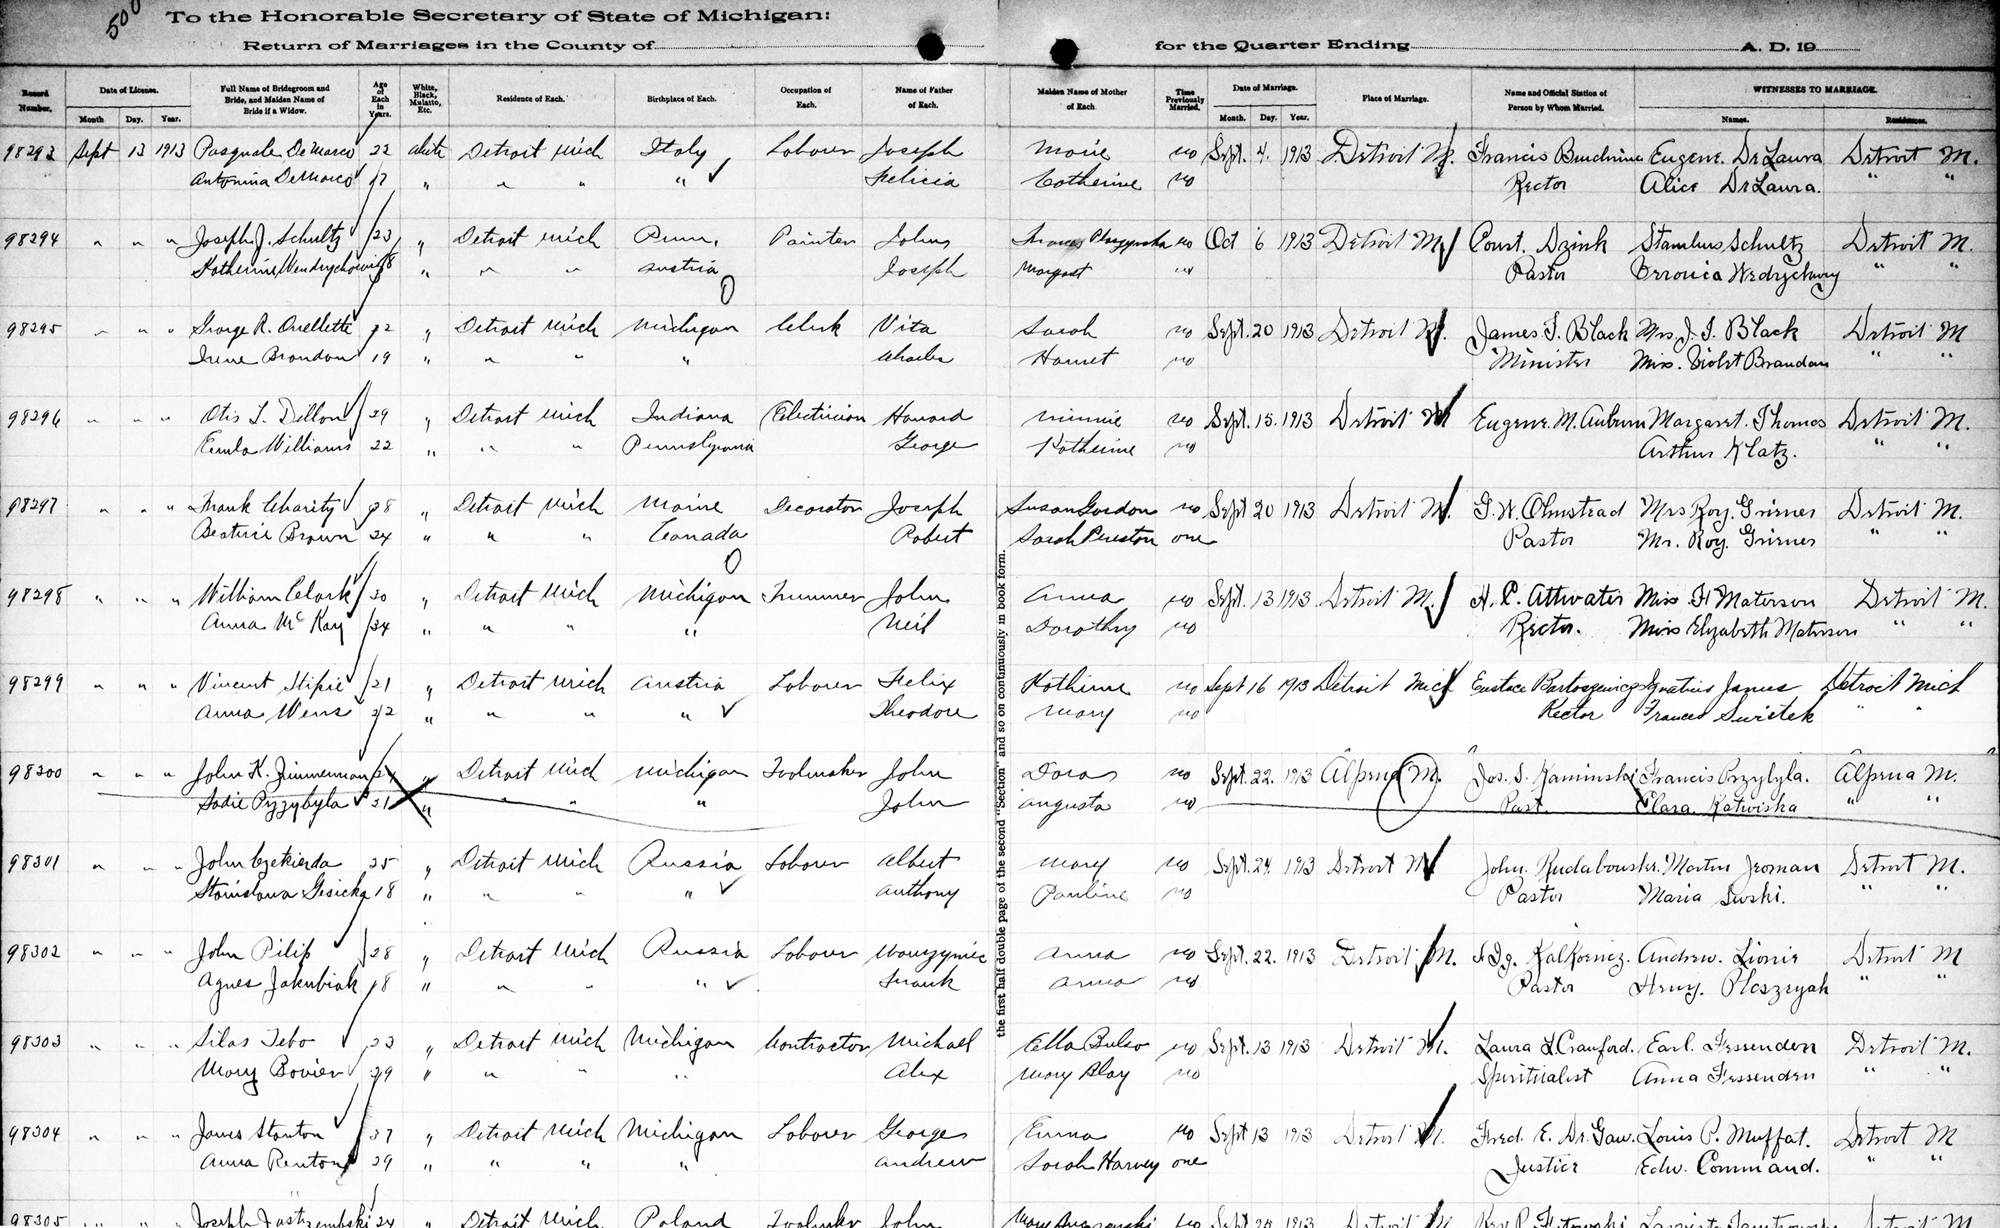 500
To the Honorable Secretary of State of Michigan:
Return of Marriages in the County of for the Quarter Ending A. D. 19
Record Number. Date of License. Month Day. Year. Full Name of Bridegroom and Bride, and Maiden Name of Bride if a Widow. Age of Each in Years. White, Black, Mulatto, Etc. Residence of Each. Birthplace of Each. Occupation of Each. Name of Father of Each. Maiden Name of Mother of Each. Time Previously Married. Date of Marriage. Month. Day. Year. Place of Marriage. Name and Official Station of Person by Whom Married. WITNESSES TO MARRIAGE. Names. Residences.
98293 Sept 13 1913 Pasquale DeMarco 22 white Detroit Mich Italy Laborer Joseph Marie no Sept. 4. 1913 Detroit M. Francis Eugene. DeLaura Detroit M.
Antonina DeMarco 17 " " " " Felicia Catherine no Rector Alice DeLaura. " "
98294 " " " Joseph J. Schultz 23 " Detroit Mich Penn. Painter John no Oct 6 1913 Detroit M. Const. Dzink Stanlus Schultz Detroit M.
Katherine 18 " " " Austria Joseph Margaret no Pastor Veronica " "
98295 " " " George R. Ouellette 22 " Detroit Mich Michigan Clerk Vita Sarah no Sept. 20 1913 Detroit M. James T. Black Mrs. J. T. Black Detroit M
Irene Brandon 19 " " " " Charles Harriet no Minister Miss. Violet Brandon " "
98296 " " " Otis L. Dillon 29 " Detroit Mich Indiana Electrician Howard Minnie no Sept. 15. 1913 Detroit M Eugene. M. Auburn Margaret. Thomas Detroit M.
Williams 22 " " " Pennsylvania George Katherine no Arthur Klatz. " "
98297 " " " Frank Charity 28 " Detroit Mich Maine Decorator Joseph Susan Gordon no Sept 20 1913 Detroit M. G. W. Olmstead Mrs Roy. Griener Detroit M.
Beatrice Brown 24 " " " Canada Robert Sarah Preston one Pastor Mr. Roy. Griener " "
98298 " " " William Clark 30 " Detroit Mich Michigan Trimmer John Anna no Sept. 13 1913. Detroit M. H. P. Attwater Miss H Materson Detroit M.
Anna McKay 34 " " " " Neil Dorothy no Rector. Miss Elizabeth Materson " "
98299 " " " Vincent 21 " Detroit Mich Austria Laborer Felix Katherine no Sept 16 1913 Detroit Mich Eustace Bartoszewicz Ignatius Janus Detroit Mich
Anna Wens 22 " " " " Theodore Mary no Rector Frances Swietek " "
98300 " " " John K. Zimmerman 24 " Detroit Mich Michigan Toolmaker John Dora no Sept. 22. 1913 Alpena M. Jos. S. Kaminski Francis Przybyla. Alpena M.
Sadie Przybyla 21 " " " " John Augusta no Past. Clara Katwiska " "
98301 " " " John 25 " Detroit Mich Russia Laborer Albert Mary no Sept. 24. 1913 Detroit M John. Martin Jroman Detroit M.
Stanislawa Gesicka 18 " " " " Anthony Pauline no Pastor Maria Swski. " "
98302 " " " John Pilip 28 " Detroit Mich Russia Laborer Anna no Sept. 22. 1913 Detroit M. Andrew. Lionie Detroit M
Agnes Jakubiak 18 " " " " Frank Anna no Pastor Henry. " "
98303 " " " Silas Tebo 23 " Detroit Mich Michigan Contractor Michael Ella no Sept. 13 1913 Detroit M. Laura L. Crawford. Earl. Fessenden Detroit M.
Mary Bovier 29 " " " " Alex Mary Blay no Spiritualist Anna Fessenden " "
98304 " " " James Stanton 37 " Detroit Mich Michigan Laborer George Emma no Sept 13 1913 Detroit M. Fred. E. De Gaw. Louis P. Muffat. Detroit M
Anna Renton 29 " " " " Andrew Sarah Harvey one Justice Edw. Command. " "
98305 " " " Joseph Jastrzembski 24 " Detroit Mich. Poland Toolmaker John no Sept 1913 Detroit M Rev. Detroit M.
the first half double page of the second "Secton" and so on continuously in book form.